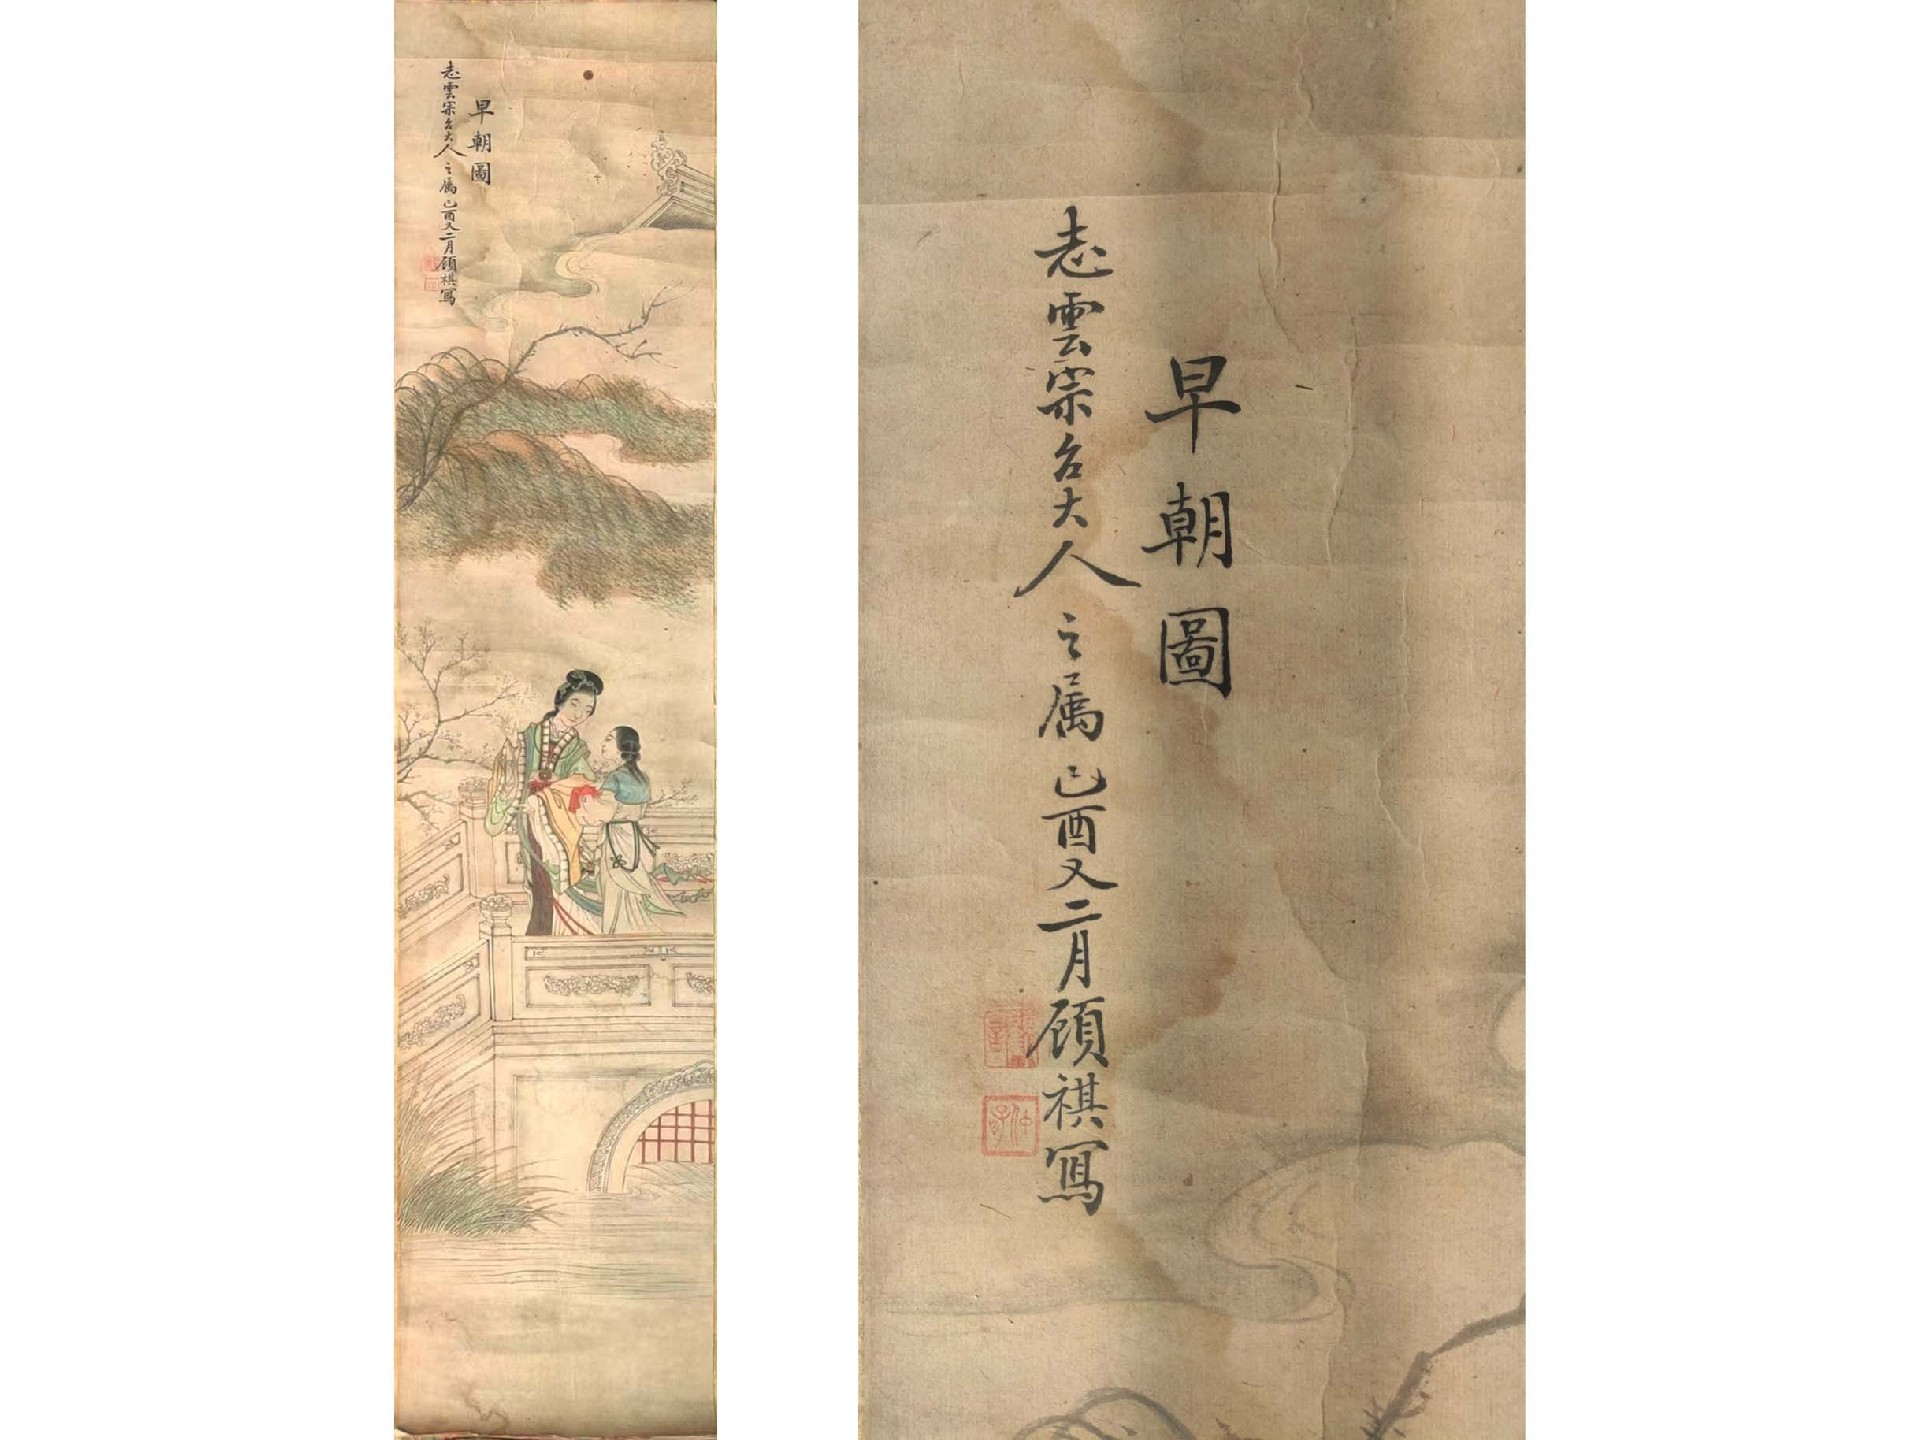 早朝圖
志雲宗台大人之属己酉又二月顧祺寫
早朝圖
志雲宗台大人之属己酉又二月顧祺寫